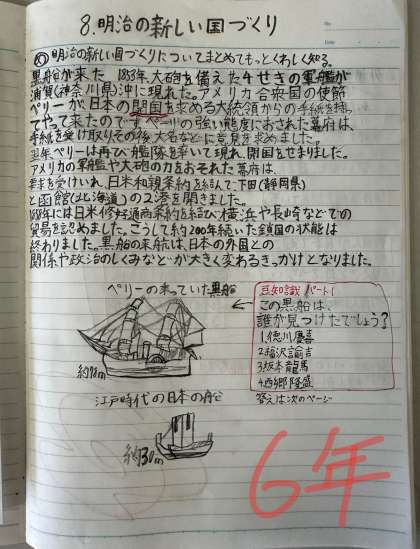 8.明治の新しい国づくり
明治の新しい国づくりについてまとめてもっとくわしく知る。
黒船が来た 1853年、大砲を備えた4せきの軍艦が
浦賀(神奈川県)沖に現れた。アメリカ合衆国の使節
ペリーが、日本の開国を求める大統領からの手紙を持っ
てやって来たのです。ペリーの強い態度におされた幕府は、
手紙を受け取りその後大名などに意見を求めました。
翌年ペリーは再び艦隊を率いて現れ、開国をせまりました。
アメリカの軍艦や大砲の力をおそれた幕府は、
要求を受けいれ、日本和親条約を結んで、下田(静岡県)
と函館(北海道)の2港を開きました。
1858年には日米修好通商条約を結び、横浜や長崎などでの
貿易を認めました。こうして約200年続いた鎖国の状態は
終わりました。黒船の来航は、日本の外国との
関係や政治のしくみなどが大きく変わるきっかけとなりました。
ペリーの乗っていた黒船
豆知識 パート1
この黒船は、
誰が見つけたでしょう?
1.徳川慶喜
2.福沢諭吉
3.坂本龍馬
4.西郷隆盛
答えは次のページ
江戸時代の日本の船
約30m
6年